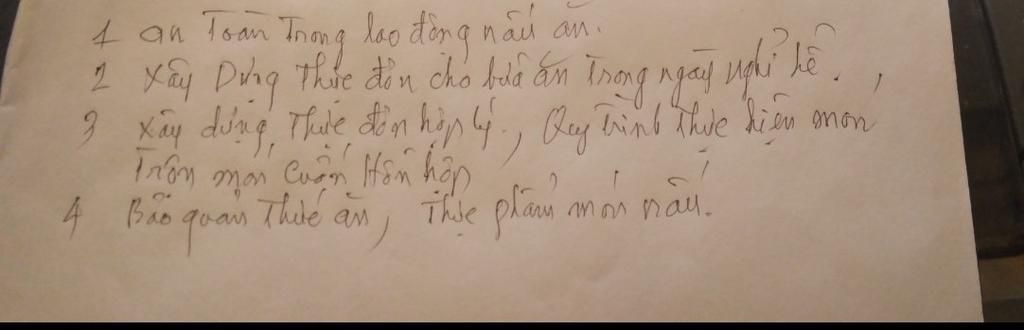 1 an Toàn Trong lao động nấu ăn.
2 Xây Dựng Thực đơn cho bữa ăn Trong ngày nghỉ hè.,
3 Xây dựng, Thực đơn hợp lý., Quy Trình Thực hiện món
Trộn món cuốn Hỗn hợp
4 Bảo quản Thức ăn, Thực phẩm món nấu.